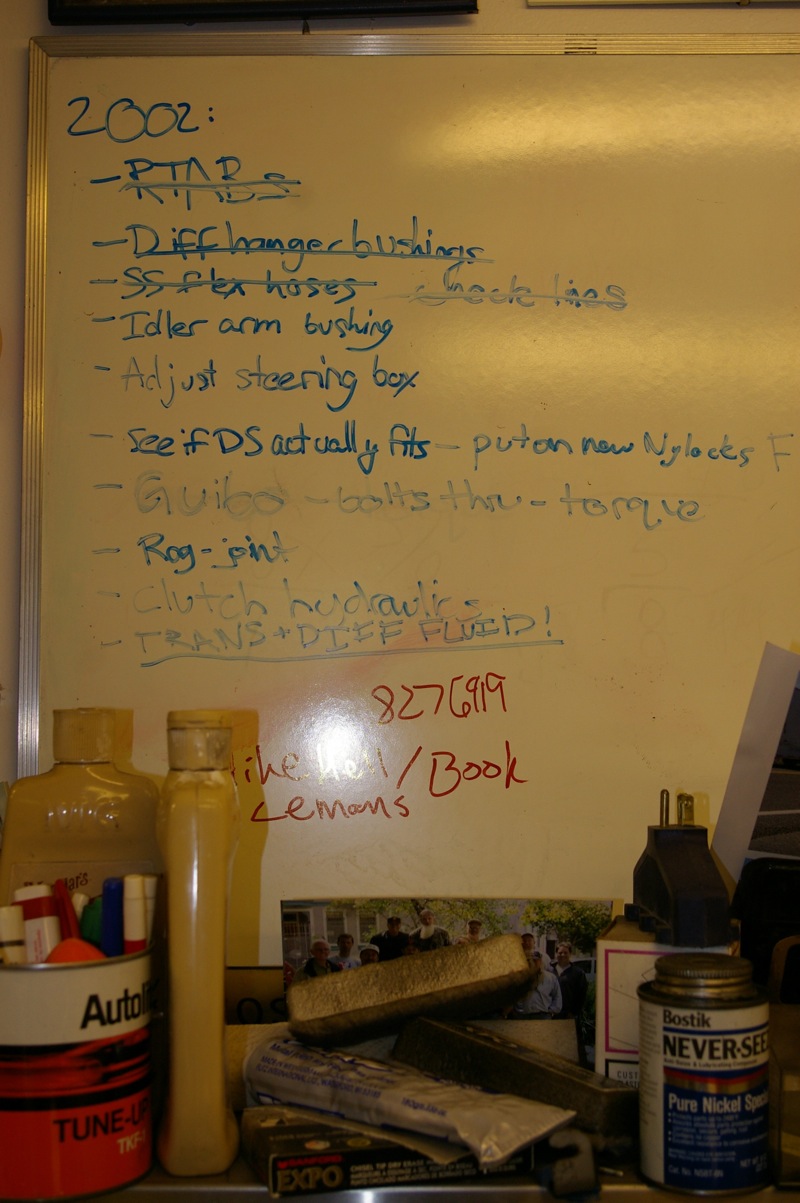 2002:
- RTABs
- Diff hanger bushings
- SS flex hoses - check lines
- Idler arm bushing
- Adjust steering box
- See if DS actually fits - put on new Nylocks F
- Guibo - bolts thru - torque
- Rag-joint
- Clutch hydraulics
- TRANS + DIFF FLUID!
8276919
/ Book
Lemans
Autoli
TUNE-UP
TKF-
EXPO
CHISEL TIP DRY ERASE
Bostik
NEVER-SEE
Pure Nickel Specia